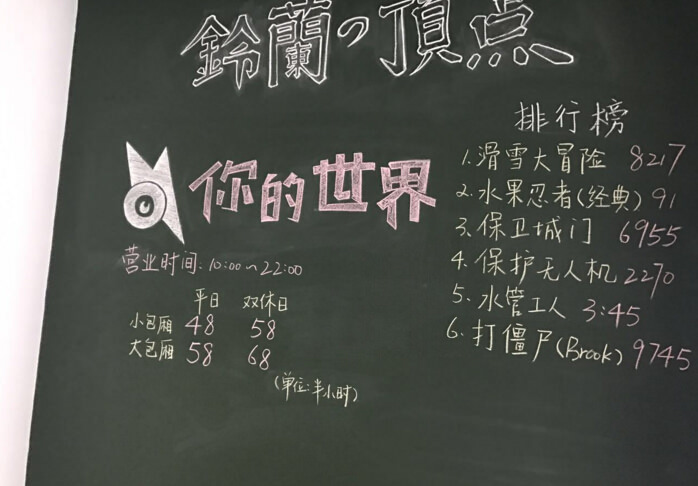 鈴蘭の頂点
你的世界
营业时间:10:00~22:00
平日 双休日
小包厢 48 58
大包厢 58 68
(单位:半小时)
排行榜
1.滑雪大冒险 8217
2.水果忍者(经典) 91
3.保卫城门 6955
4.保护无人机 2270
5.水管工人 3:45
6.打僵尸(Brook) 9745